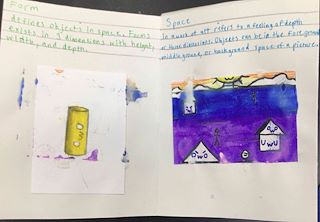 Form
defines objects in space. Forms
exists in 3 dimensions with height,
width, and depth.
Space
In a work of art refers to a feeling of depth
or three dimensions. Objects can be in the foreground
middle ground, or background space of a picture.
OwO
UwU